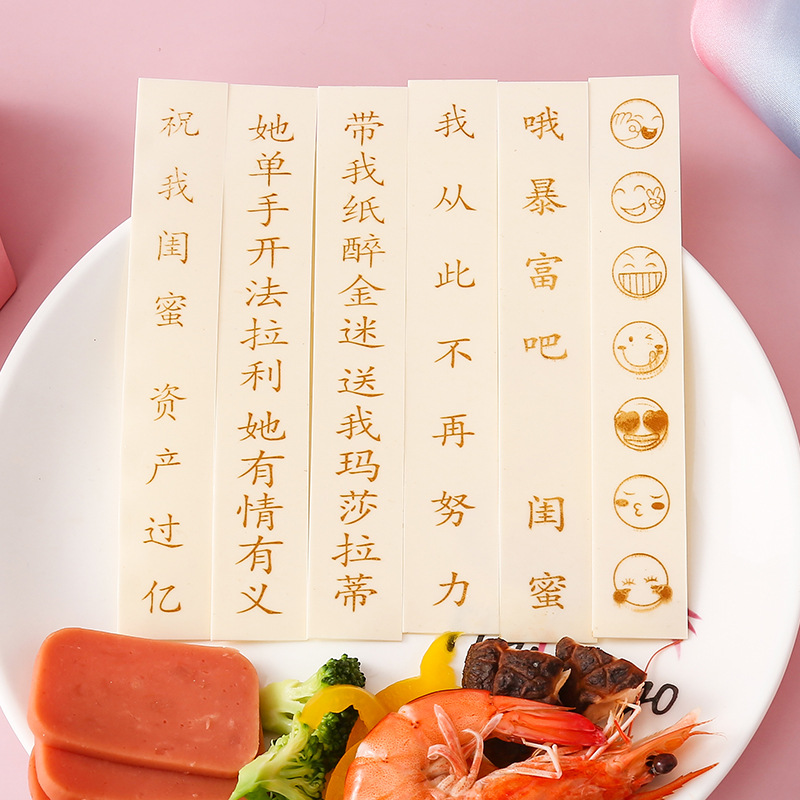 祝我闺蜜 资产过亿
她单手开法拉利 她有情有义
带我纸醉金迷 送我玛莎拉蒂
我从此不再努力
哦暴富吧 闺蜜